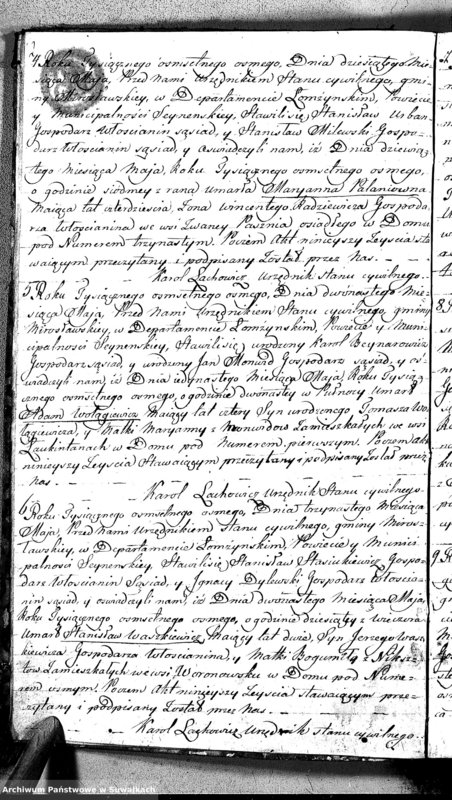 4 Roku Tysiącznego osmsetnego osmego, Dnia dziesiątego Mie-
siąca Maja, Przed Nami Urzędnikiem Stanu cywilnego, gmi-
ny Mirosławskiey, w Departamencie Łomżynskim, Powiecie
y Municypalności Seynenskiey, Stawili się Stanisław Urban
Gospodarz Włoscianin sąsiad, y Stanisław Milewski Gospo-
darz Włoscianin sąsiad, y oswiadczyli nam, iż Dnia dziewią-
tego miesiąca Maja, Roku Tysiącznego osmsetnego osmego,
o godzinie siodmey z rana umarła Maryanna Palaniowna
Maiąca lat czterdziescia, Żona Wincentego Radziewicza Gospoda-
rza Włoscianina we wsi Zwaney Pasznia osiadłego w Domu
pod Numerem trzynastym. Poczem Akt ninieyszy Zeyscia sta-
waiącym przeczytany i podpisany Został przez nas. —
Karol Lachowicz Urzędnik Stanu cywilnego.
5. Roku Tysiącznego osmsetnego osmego, Dnia dwonastego Mie-
siąca Maja, Przed Nami Urzędnikiem Stanu cywilnego gminy
Mirosławskiey, w Departamencie Łomżynskim, Powiecie y Muni-
cipalności Seynenskiey, Stawili się urodzony Karol Beynarowicz
Gospodarz sąsiad, y urodzony Jan Monwid Gospodarz sąsiad, y os-
wiadczyli nam, iż Dnia iedynastego Miesiąca Maja, Roku Tysiąc-
znego osmsetnego osmego, o godzinie dwonastey w Putnocy Umarł
Adam Wołągiewicz Maiący lat cztery Syn urodzonego Tomasza Wo-
łągiewicza, y Matki Maryanny z Monwidow Zamieszkałych we wsi
Laukintanach w Domu pod Numerem pierwszym. Poczem akt
ninieyszy Zeyscia Stawaiącym przeczytany i podpisany Został przez
nas —
Karol Lachowicz Urzędnik Stanu cywilnego.
6. Roku Tysiącznego osmsetnego osmego, Dnia trzynastego Miesiąca
Maja, Przed Nami Urzędnikiem stanu cywilnego, gminy Miros-
ławskiey, w Departamencie Łomżynskim, Powiecie y Munici-
palności Seynenskiey, Stawili się Stanisław Stasiukiewicz Gospo-
darz Włoscianin Sąsiad, y Ignacy Dylewski Gospodarz Włoscia-
nin sąsiad, y oswiadczyli nam, iż Dnia dwonastego miesiąca Maja,
Roku Tysiącznego osmsetnego osmego, o godzinie dziesiątey z wieczora
Umarł Stanisław Waszkiewicz Maiący lat dwa, Syn Jerzego Wasz-
kiewicza Gospodarza Włoscianina, y Matki Bogumiły z Niksz-
tow Zamieszkałych we wsi Woronowsku w Domu pod Nume-
rem osmym. Poczem Akt ninieyszy Zeyscia stawaiącym prze-
czytany i podpisany Został przez Nas. —
Karol Lachowicz Urzędnik stanu cywilnego.
Archiwum Państwowe w Suwałkach